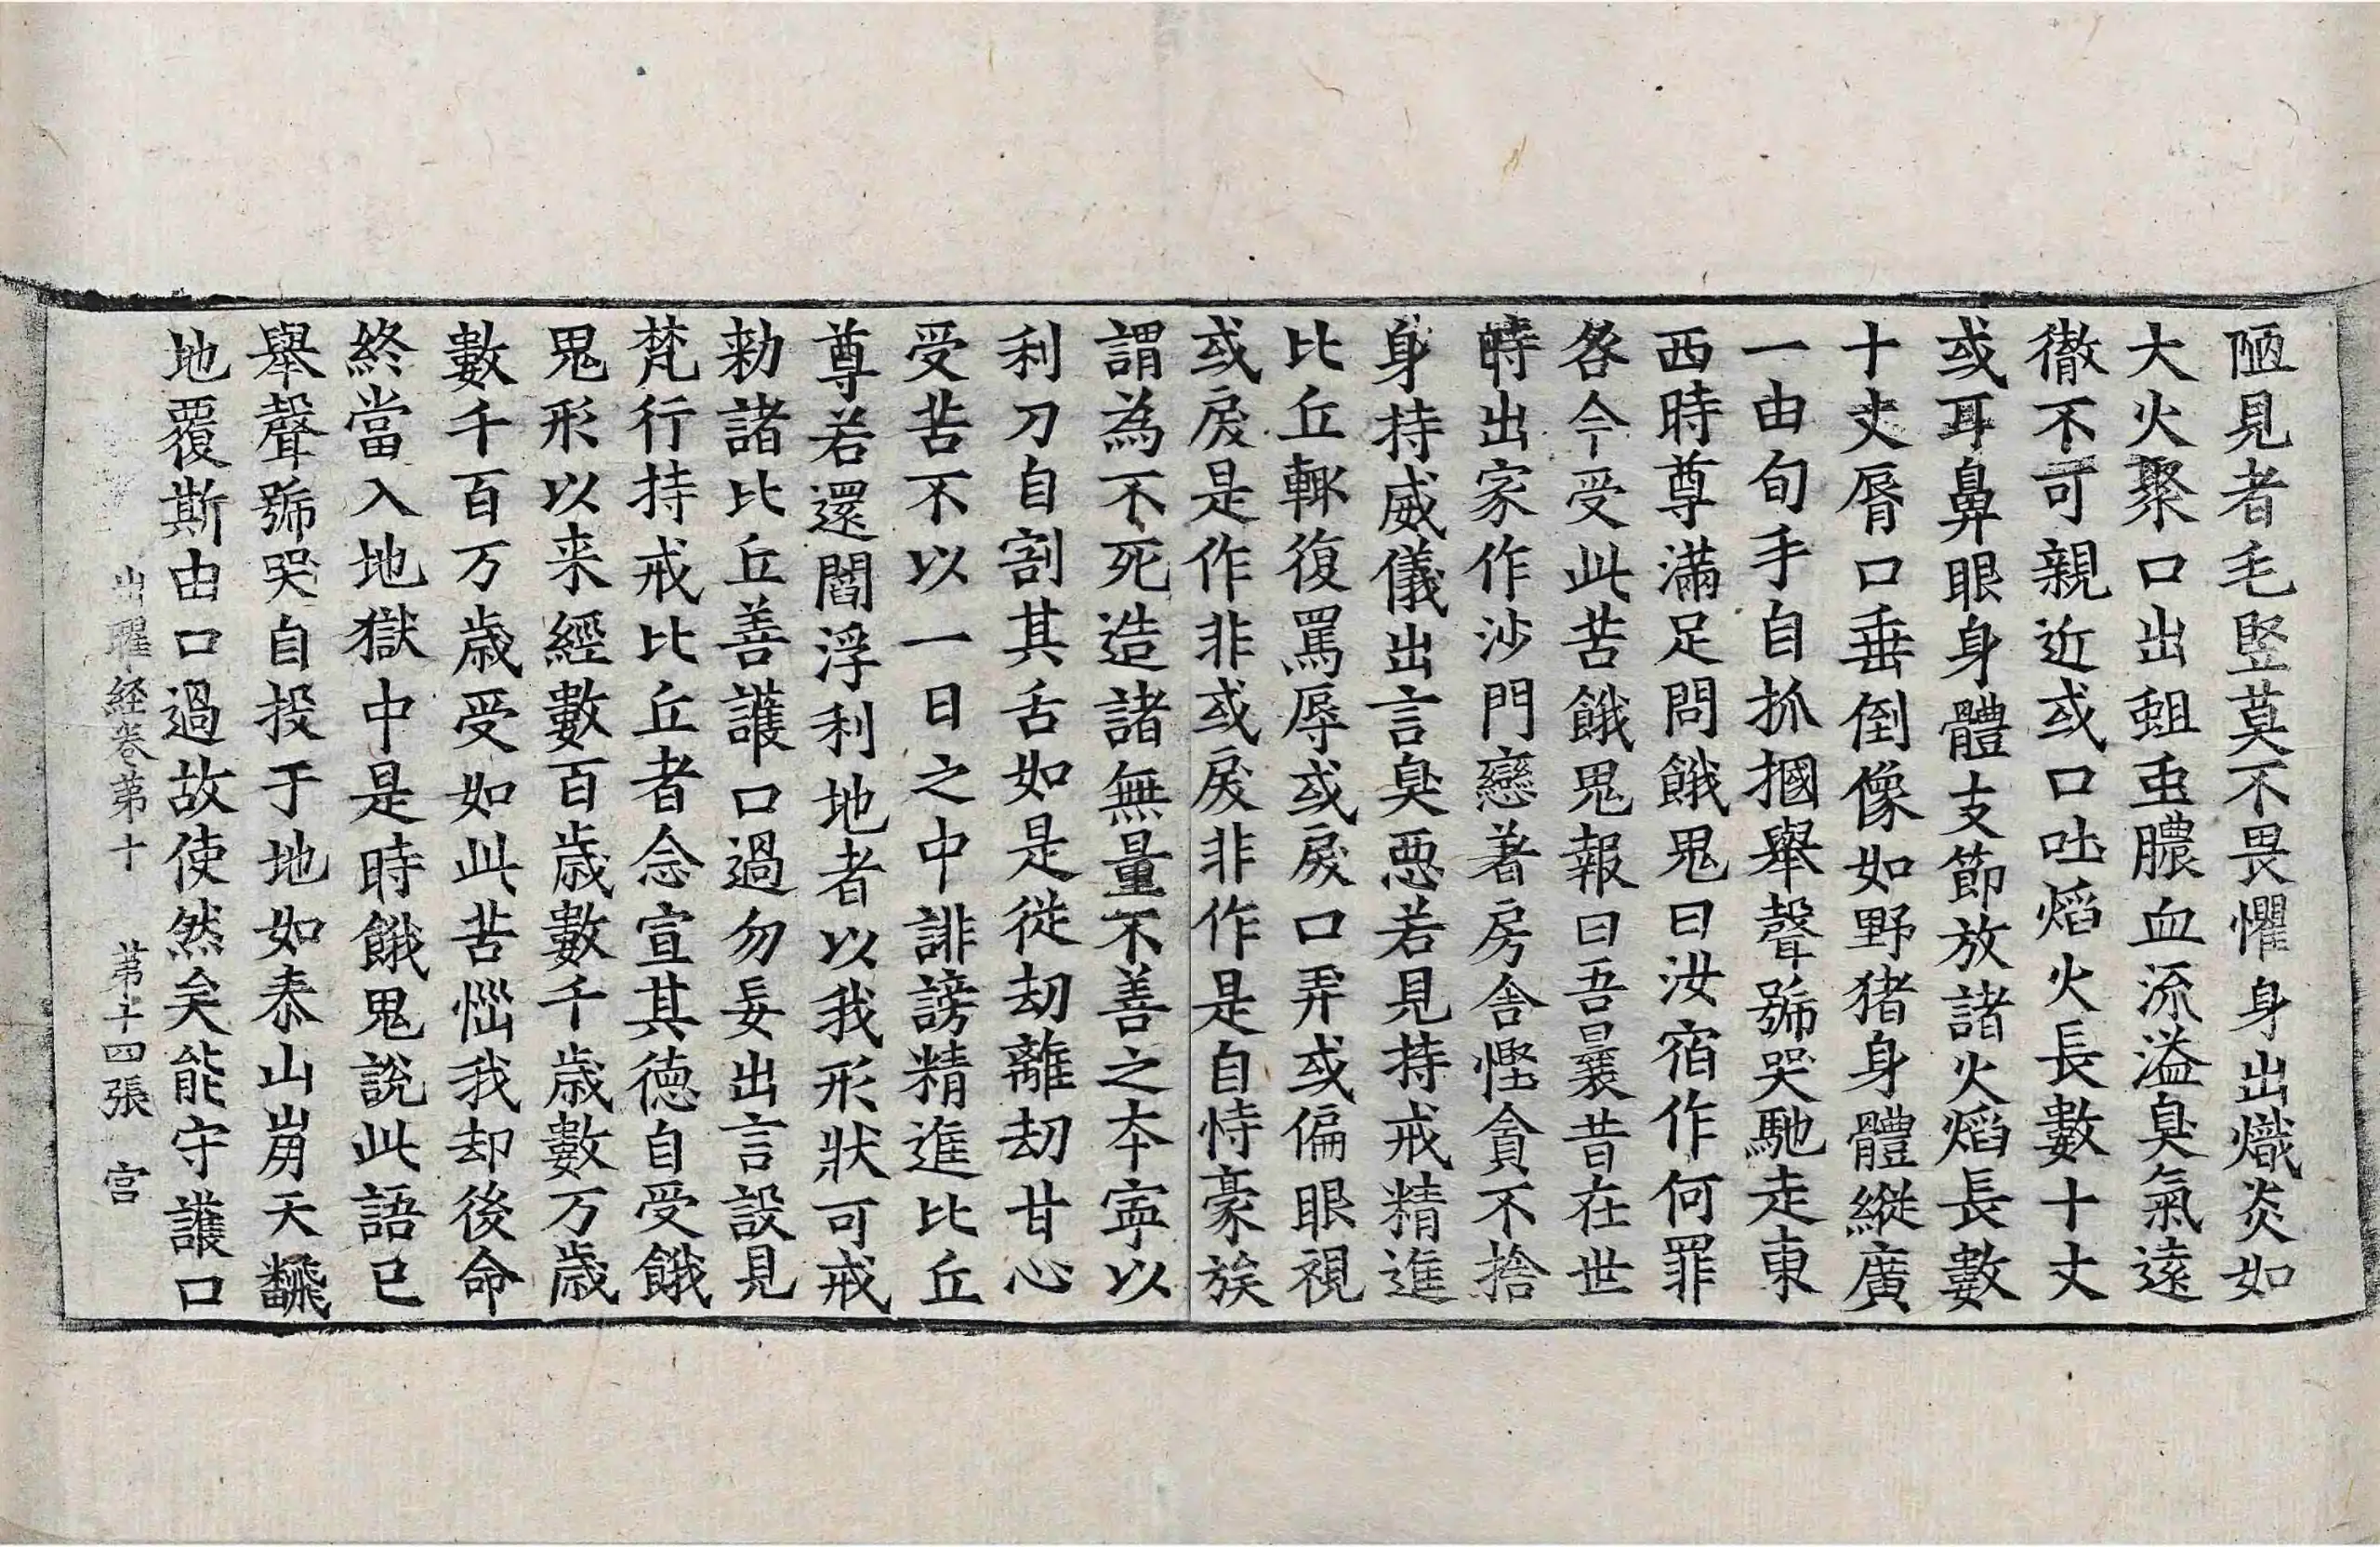 陋見者毛竪莫不畏懼身出熾炎如
大火聚口出蛆虫膿血流溢臭氣遠
徹不可親近或口吐焰火長數十丈
或耳鼻眼身體支節放諸火焰長數
十丈脣口垂倒像如野猪身體縱廣
一由旬手自抓摑舉聲號哭馳走東
西時尊滿足問餓鬼曰汝宿作何罪
咎今受此苦餓鬼報曰吾曩昔在世
時出家作沙門戀著房舍慳貪不捨
身持威儀出言臭惡若見持戒精進
比丘輙復罵辱或戾口弄或偏眼視
或戾是作非或戾非作是自恃豪族
謂為不死造諸無量不善之本寧以
利刀自割其舌如是從劫離劫甘心
受苦不以一日之中誹謗精進比丘
尊若還閻浮利地者以我形狀可戒
勑諸比丘善護口過勿妄出言設見
梵行持戒比丘者念宣其德自受餓
鬼形以来經數百歳數千歳數万歳
數千百万歳受如此苦惱我却後命
終當入地獄中是時餓鬼說此語已
舉聲號哭自投于地如泰山崩天翻
地覆斯由口過故使然矣能守護口
出曜経卷苐十 苐十四張 宫